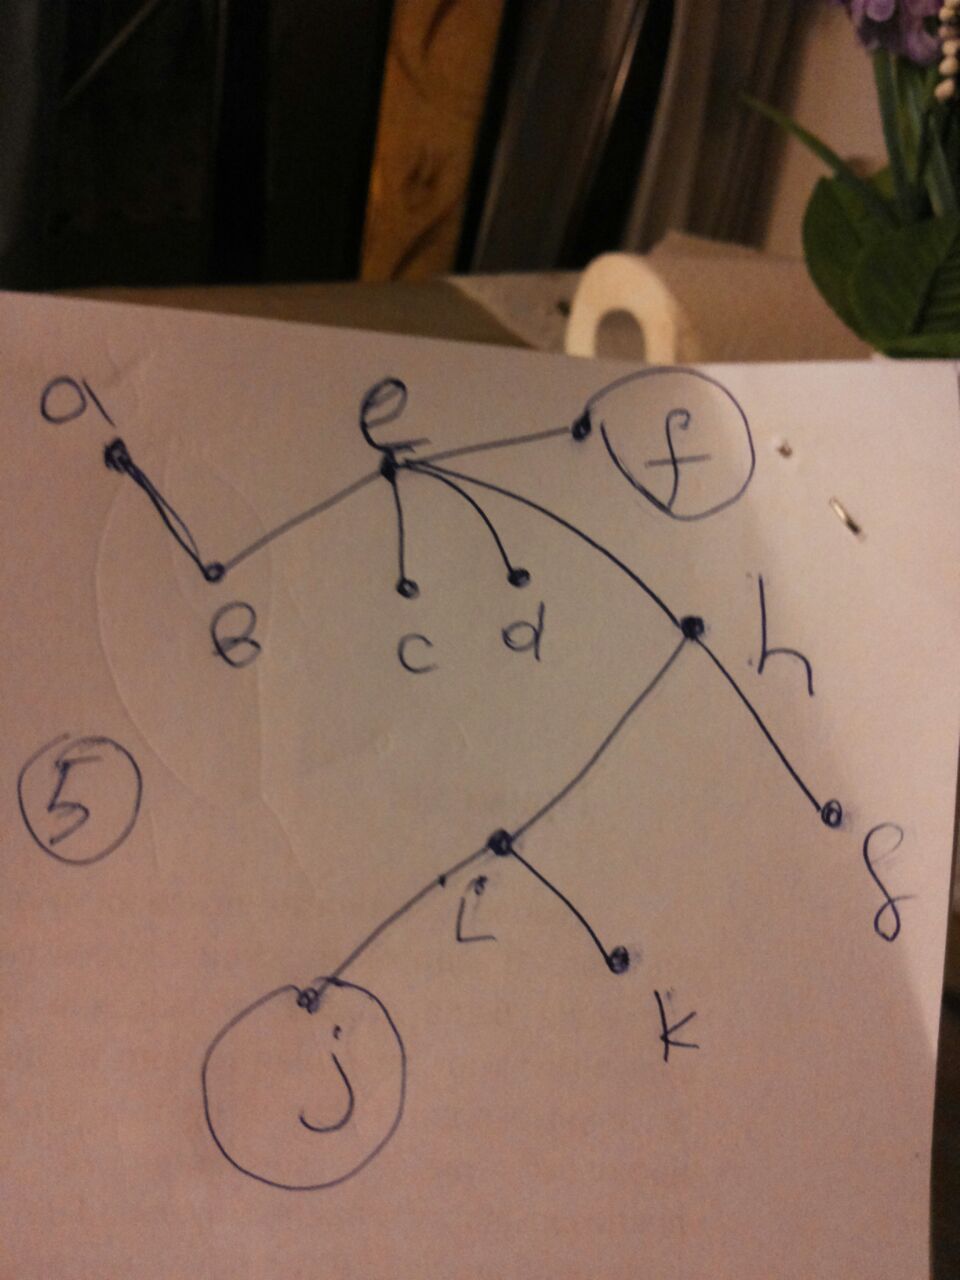 a
e
f
B
c
d
h
5
g
i
k
j